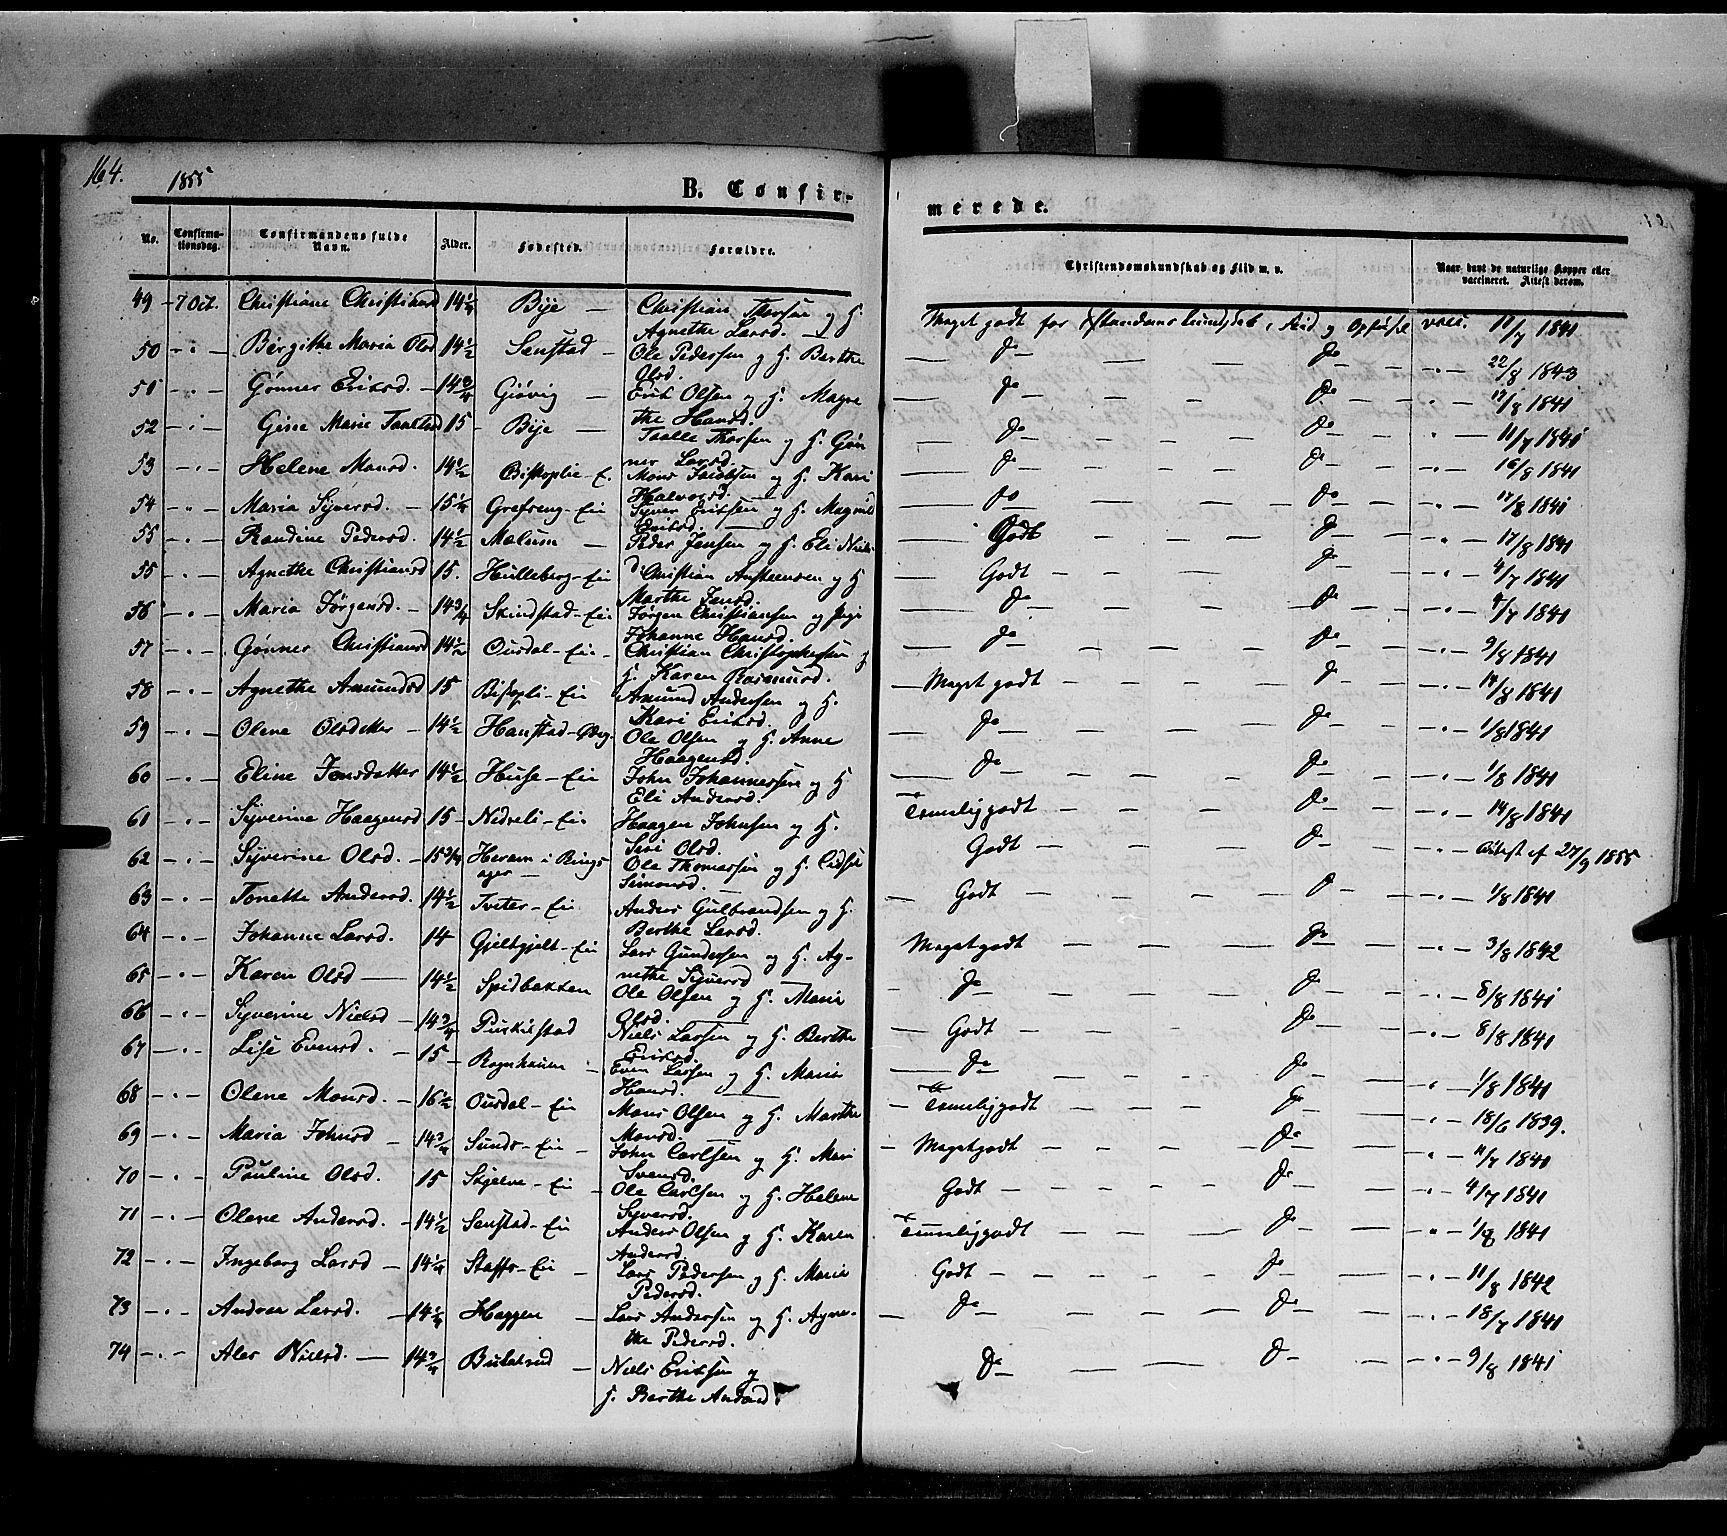 164.
1855
B. Confir-
merede.
No. Confirmationsdag. Confirmandens fulde Navn. Alder. Fødested. Forældre. Christendomskundskab og Flid m. v. Naar havt de naturlige Kopper eller vaccineret. Attest derom.
49 - 7 Oct. Christiane Christiansd 14 1/4 Bije - Christian Thorsen og H. Agnethe Larsd. - Meget godt for Forstandens Kundskab, Flid og Opførsel vacc. 11/7 1841
50 - " - Birgithe Maria Olsd 14 1/2 Senstad - Ole Pedersen og H. Berthe Olsd. Do - - - Do - " - 22/8 1843
51 - " - Gønner Eriksd. - 14 3/4 Giøvig - Erik Olsen og H. Magnethe Hansd. Do - - - Do - " - 17/8 1841
52 - " - Gine Marie Taallesd 15 - Bije - Taalle Thorsen og H. Gønner Larsd. Do - - - Do - " - 11/7 1841
53 - " - Helene Monsd. 14 1/2 Bistoplie - E. Mons Jacobsen og H. Kari Halvorsd. Do - - - Do - " - 16/8 1841
54 - " - Maria Syversd. - 15 1/4 Grefseng - Ei Syver Eriksen og H. Magnild Eriksd. Do - - - Do - " - 17/8 1841
55 - " - Randine Pedersd. 14 1/2 Mælum - Peder Jensen og H. Eli Niels d Godt - - - Do - " - 17/8 1841
55 - " - Agnethe Christiansd 15. Hulleberg - Ei Christian Anstensen og H Marthe Jensd. Godt - - - Do - " - 4/7 1841
56 - " - Maria Jørgensd. - 14 3/4 Skindstad - Ei Jørgen Christiansen og Pige Johanne Hansd. Do - - - Do - " - 4/7 1841
57 - " - Gønner Christiansd 14 1/2 Ourdal - Ei - Christian Christophersen og H. Karen Rasmusd. Do - - - Do - " - 9/8 1841
58 - " - Agnethe Amundsd 15 Bistopli - Ei Amund Andersen og H. Kari Eriksd. - Meget godt - - - Do - " - 14/8 1841
59 - " - Olene Olsdatter - 14 1/2 Hanstad - Ole Olsen og H. Anne Haagensd. Do - - - Do - " - 1/8 1841
60 - " - Eline Jonsdatter 14 1/2 Huse - Ei John Johannessen og H Eli Andersd. Do - - - Do - " - 1/8 1841
61 - " - Syverine Haagensd 15 - Nedreli - Ei Haagen Johnsen og H. Siri Olsd. Temeliggodt - - - Do - " - 14/8 1841
62 - " - Syverine Olsd. - 15 3/4 Heram i Ringsager - Ole Thomassen og H. Lidse Simonsd. - Godt - - - Do - Attest af 27/9 1855
63 - " - Tonette Andersd. 14 1/2 Tveter - Ei Anders Gulbrandsen og H. Berthe Larsd. - Godt - - - Do - " - 1/8 1841
64 - " - Johanne Larsd. 14 Gjeltgjelt - Ei Lars Gundersen og H. Agnethe Syversd Megetgodt - - - Do - " - 3/8 1842
65 - " - Karen Olsd - 14 1/2 Spidbakken Ole Olsen og H. Maria Olsd. Do - - - Do - " - 8/8 1841
66 - " - Syverine Nielsd - 14 3/4 Puskilstad Niels Larsen og H. Berthe Eriksd. Godt - - - Do - " - 8/8 1841
67 - " - Lise Evensd. - 15 - Rognhauun - Even Larsen og H. Maria Hansd. - Do - - - Do - " - 1/8 1841
68 - " - Olene Monsd. - 16 1/2 Ourdal - Ei Mons Olsen og H. Marthe Monsd. - Temeliggodt - - - Do - " - 18/6 1839.
69 - " - Maria Johnsd - 14 3/4 Sunds - Ei - John Carlsen og H. Mari Svensd. - Megetgodt - - - Do - " - 11/7 1841
70 - " - Pauline Olsd. 15 Skjelve - Ei - Ole Carlsen og H. Helene Syversd. Godt - - - Do - " - 4/7 1841
71 - " - Olene Andersd. - 14 1/2 Senstad - Ei Anders Olsen og H. Karen Andersd. Temmeliggodt - - - Do - " - 1/8 1841
72 - " - Ingeborg Larsd - 14 1/4 Staffs - Ei - Lars Pedersen og H. Maria Pedersd. Godt - - - Do - " - 11/8 1842
73 - " - Andrea Larsd. - 14 1/4 Haggen - Lars Andersen og H. Agnethe Pedersd. - Do - - - Do - " - 18/7 1841
74 - " - Ales Nielsd. - 14 3/4 Bulstrud - Niels Eriksen og H. Berthe Andersd. Do - - - Do - " - 9/8 1841